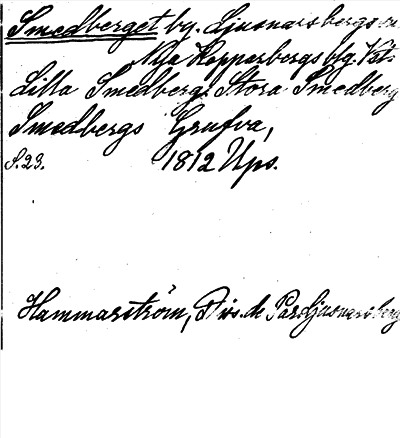 Smedberget by. Ljusnarsbergs
Nya Kopparbergs blg. Vstm
Lilla Smedberg. Stora Smedberg
Smedbergs Grufva,
S. 23. 1812 Ups.
Hammarström, Diss. de Par. Ljusnarsberg